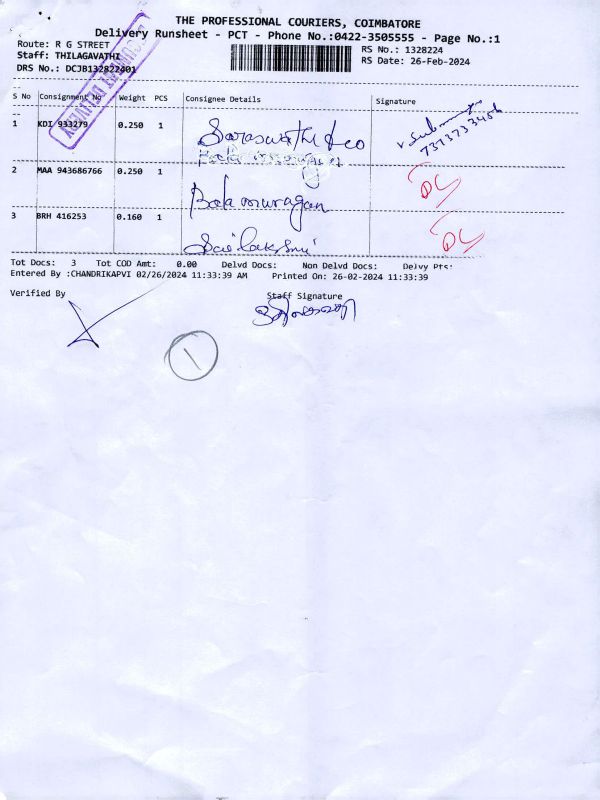 THE PROFESSIONAL COURIERS, COIMBATORE
Delivery Runsheet - PCT - Phone No.:0422-3505555 - Page No.:1
Route: R G STREET
Staff: THILAGAVATHI
DRS No.: DCJB132822401
RS No.: 1328224
RS Date: 26-Feb-2024
S No Consignment No Weight PCS Consignee Details Signature
1 KDI 933279 0.250 1 Saraswathi & co
7373733456
2 MAA 943686766 0.250 1 Balamurugan
DC
3 BRH 416253 0.160 1 Sai lakshmi
DC
Tot Docs: 3 Tot COD Amt: 0.00 Delvd Docs: Non Delvd Docs: Delvy Pts:
Entered By :CHANDRIKAPVI 02/26/2024 11:33:39 AM Printed On: 26-02-2024 11:33:39
Verified By Staff Signature
1